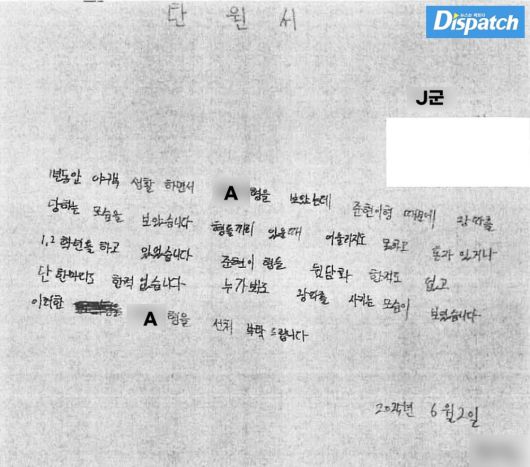 뉴스는 팩트다
Dispatch
탄 원 서
J군
1년동안 야구부 생활 하면서 A 형을 보았는데 준현이형 때문에 왕따를
당하는 모습을 보았습니다 형들끼리 있을때 어울리지도 못하고 혼자 있거나
1,2 학년들하고 있었습니다 준현이 형들 뒷담화 한적도 없고
단 한마디도 한적 없습니다 누가봐도 왕따를 시키는 모습이 보였습니다
이러한 A 형을 선처 부탁 드립니다
2024년 6월 2일